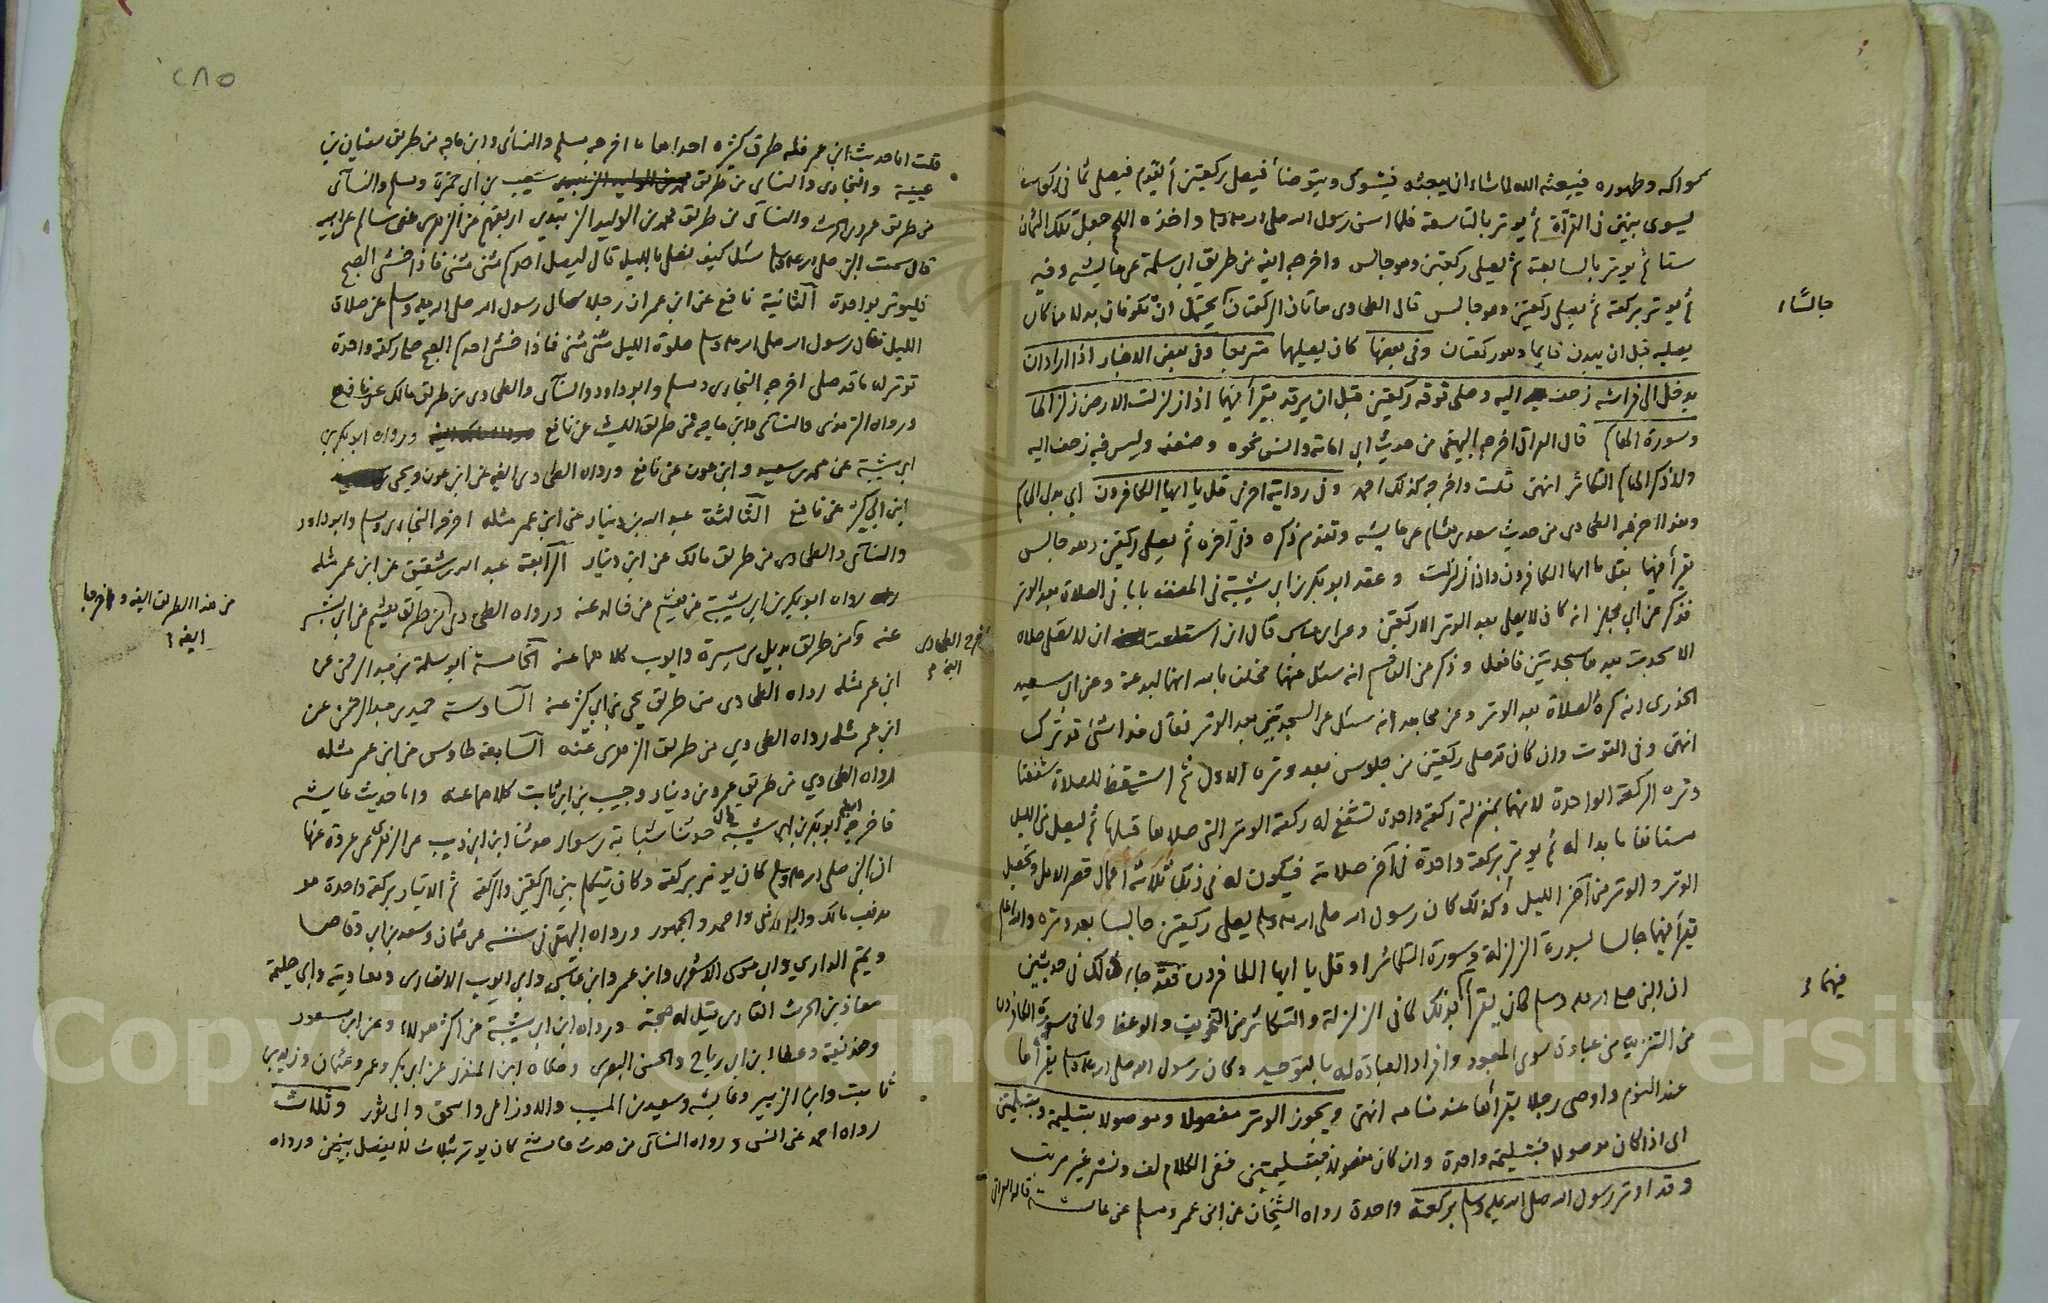 سواكه وطهوره فيبعثه الله لما شاء ان يبعثه فيتسوك ويتوضأ فيصلى ركعتين ثم يقوم فيصلى ثمانى ركعات
يسوى بينهن فى القرآة ثم يوتر بالتاسعة فلما اسن رسول الله صلى الله عليه وسلم واخذه اللحم جعل تلك الثمان
ستا ثم يوتر بالسابعة ثم يصلى ركعتين وهو جالس واخرجه ايضا من طريق ابى سلمة عن عائشة وفيه
ثم يوتر بركعة ثم يصلى ركعتين وهو جالس قال الطحاوى هاتان الركعتان يحتمل ان تكونا بدلا مما كان
جالسًا
يصليه قبل ان يبدن قايما وهو ركعتان وفى بعضها كان يصليها متربعا وفى بعض الاخبار اذا اراد ان
يدخل الى فراشه زحف اليه وصلى فوقه ركعتين قبل ان يرقد يقرأ فيهما اذا زلزلت الارض زلزالها
وسورة الهاكم قال العراقى اخرجه البيهقى من حديث ابى امامة وانس نحوه وضعفه وليس فيه زحف اليه
ولا ذكر الهاكم التكاثر انتهى قلت واخرجه كذلك احمد وفى رواية اخرى قل يا ايها الكافرون اى بدل الهاكم
وهذا اخرجه الطحاوى من حديث سعد بن هشام عن عايشه وتقدم ذكره وفى آخره ثم يصلى ركعتين وهو جالس
يقرأ فيهما بقل يا ايها الكافرون واذا زلزلت وعقد ابو بكر بن ابى شيبة فى المصنف بابا فى الصلاة بعد الوتر
فذكر عن ابى مجلز انه كان لا يصلى بعد الوتر الا ركعتين وعن ابن عباس قال ان استطعت ان لا تصلى صلاة
الا سجدت بعدها سجدتين فافعل وذكر عن القاسم انه سئل عنهما فحلف بالله انهما لبدعة وعن ابى سعيد
الخدرى انه كره الصلاة بعد الوتر وعن مجاهد انه سئل عن السجدتين بعد الوتر فقال هذا شئ قد ترك
انتهى وفى القوت وان كان قد صلى ركعتين من جلوس بعد وتره الاول ثم استيقظ للصلاة شفعتا
وتره الركعة الواحدة لانهما بمنزلة ركعة واحدة تشفع له ركعة الوتر التى صلاها قبلها ثم ليصل من الليل
مستانفا ما بدا له ثم يوتر بركعة واحدة فى آخر صلاته فيكون له فى ذلك ثلاثة اعمال قصر الامل وتحصيل
الوتر والوتر من آخر الليل وكذلك كان رسول الله صلى الله عليه وسلم يصلى ركعتين جالسا بعد وتره والله اعلم
يقرأ فيهما جالسا بسورة الزلزلة وسورة التكاثر او قل يا ايها الكافرون فقد جاء ذلك فى حديثين
فيهما
ان النبى صلى الله عليه وسلم كان يقرأ بذلك لما فى الزلزلة والتكاثر من التخويف والوعظ ولما فى سورة الكافرون
من التنزيه من عبادة سوى المعبود وافراد العبادة له بالتوحيد وكان رسول الله صلى الله عليه وسلم يقرأها
عند النوم واوصى رجلا يقرأها عند منامه انتهى ويجوز الوتر مفصولا وموصولا بتسليمة وبتسليمتين
اى اذا كان موصولا فبتسليمة واحدة وان كان مفصولا فبتسليمتين ففى الكلام لف ونشر غير مرتب
وقد اوتر رسول الله صلى الله عليه وسلم بركعة واحدة رواه الشيخان عن ابن عمر ومسلم عن عائشة قاله العراقى
٢٨٥
قلت اما حديث ابن عمر فله طرق كثيره احداها ما اخرجه مسلم والنسائى وابن ماجه من طريق سفيان بن
عيينة والبخارى والنسائى من طريق شعيب بن ابى حمزة ومسلم والنسآئى
من طريق عمرو بن الحرث والنسآئى من طريق محمد بن الوليد الزبيدى اربعتهم عن الزهرى عن سالم عن ابيه
قال سمعت النبى صلى الله عليه وسلم سئل كيف نصلى بالليل قال ليصل احدكم مثنى مثنى فاذا خشى الصبح
فليوتر بواحدة الثانية نافع عن ابن عمر ان رجلا سال رسول الله صلى الله عليه وسلم عن صلاة
الليل فقال رسول الله صلى الله عليه وسلم صلوة الليل مثنى مثنى فاذا خشى احدكم الصبح صلى ركعة واحدة
توتر له ما قد صلى اخرجه البخارى ومسلم وابو داود والنسآئى والطحاوى من طريق مالك عن نافع
ورواه الترمذى والنسائى وابن ماجه من طريق الليث عن نافع ورواه ابو بكر بن
ابى شيبة عن محمد بن سعيد وابن عون عن نافع ورواه الطحاوى ايضا عن ابن عون ويحيى
ابن ابى كثير عن نافع الثالثة عبد الله بن دينار عن ابن عمر مثله اخرجه البخارى ومسلم وابو داود
والنسآئى والطحاوى من طريق مالك عن ابن دينار الرابعة عبد الله بن شقيق عن ابن عمر مثله
رواه ابو بكر بن ابى شيبة عن هشيم عن خالد عنه ورواه الطحاوى من طريق هشيم عن ابى بشر
من هذا الطريق ايضا واخرجها
ايضا
عنه ومن طريق بديل بن ميسرة وايوب كلاهما عنه الخامسة ابو سلمة بن عبد الرحمن عن
اخرجه الطحاوى
ايضا
ابن عمر مثله رواه الطحاوى من طريق يحيى بن ابى كثير عنه السادسة حميد بن عبد الرحمن عن
ابن عمر مثله رواه الطحاوي من طريق الزهرى عنه السابعة طاوس عن ابن عمر مثله
رواه الطحاوي من طريق عمرو بن دينار وحبيب بن ابى ثابت كلاهما عنه واما حديث عايشه
فاخرجه ايضا ابو بكر بن ابى شيبة قال حدثنا شبابة بن سوار حدثنا ابن ابى ذيب عن الزهرى عن عروة عنها
ان النبى صلى الله عليه وسلم كان يوتر بركعة وكان يتكلم بين الركعتين والركعة ثم الايتار بركعة واحدة هو
مذهب مالك والشافعى واحمد والجمهور ورواه البيهقى فى سننه عن عثمان وسعد بن ابى وقاص
وتميم الدارى وابى موسى الاشعرى وابن عمر وابن عباس وابى ايوب الانصارى ومعاوية وابى حليمة
معاذ بن الحرث القارى قيل له صحبة ورواه ابن ابى شيبة عن اكثر هولاء وعن ابن مسعود
وحذيفة وعطا ابن ابى رباح والحسن البصرى وحكاه ابن المنذر عن ابى بكر وعمر وعثمان وزيد بن
ثابت وابن الزبير وعايشه وسعيد بن المسيب والاوزاعى واسحق وابى ثور وثلاث
رواه احمد عن النسى ورواه النسآئى من حديث عايشة كان يوتر بثلاث لا يفصل بينهن ورواه
Copyright © King Saud University